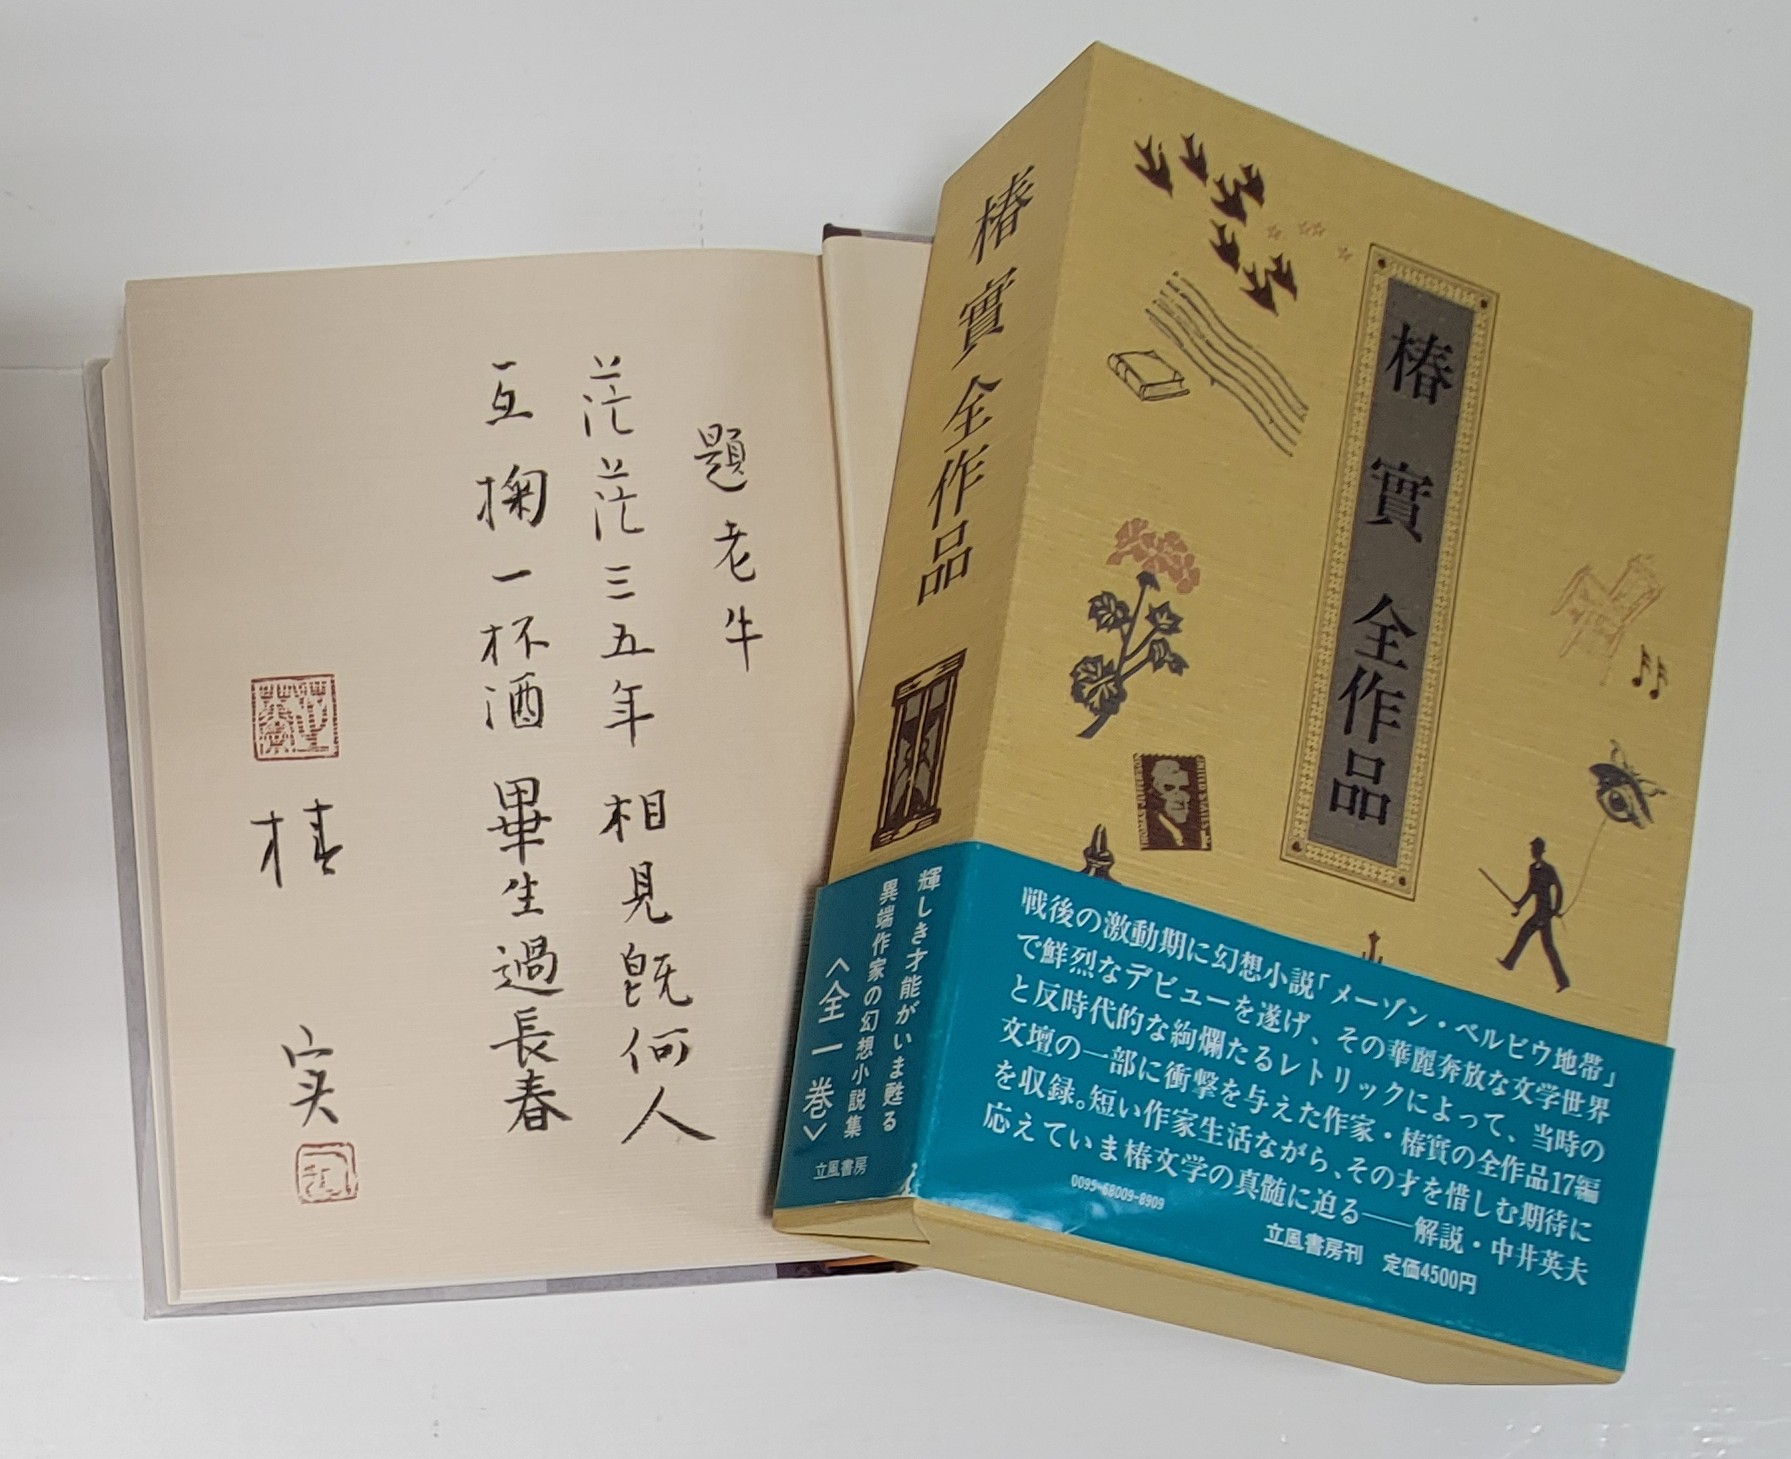 題老牛
茫茫三五年 相見既何人
互掬一杯酒 畢生過長春
椿 実
椿實全作品
椿實全作品
輝しき才能がいま甦る
異端作家の幻想小説集
〈全一巻〉
立風書房
戦後の激動期に幻想小説「メーゾン・ベルビウ地帯」
で鮮烈なデビューを遂げ、その華麗奔放な文学世界
と反時代的な絢爛たるレトリックによって、当時の
文壇の一部に衝撃を与えた作家・椿實の全作品17編
を収録。短い作家生活ながら、その才を惜しむ期待に
応えていま椿文学の真髄に迫る──解説・中井英夫
0095-68009-8909
立風書房刊 定価4500円